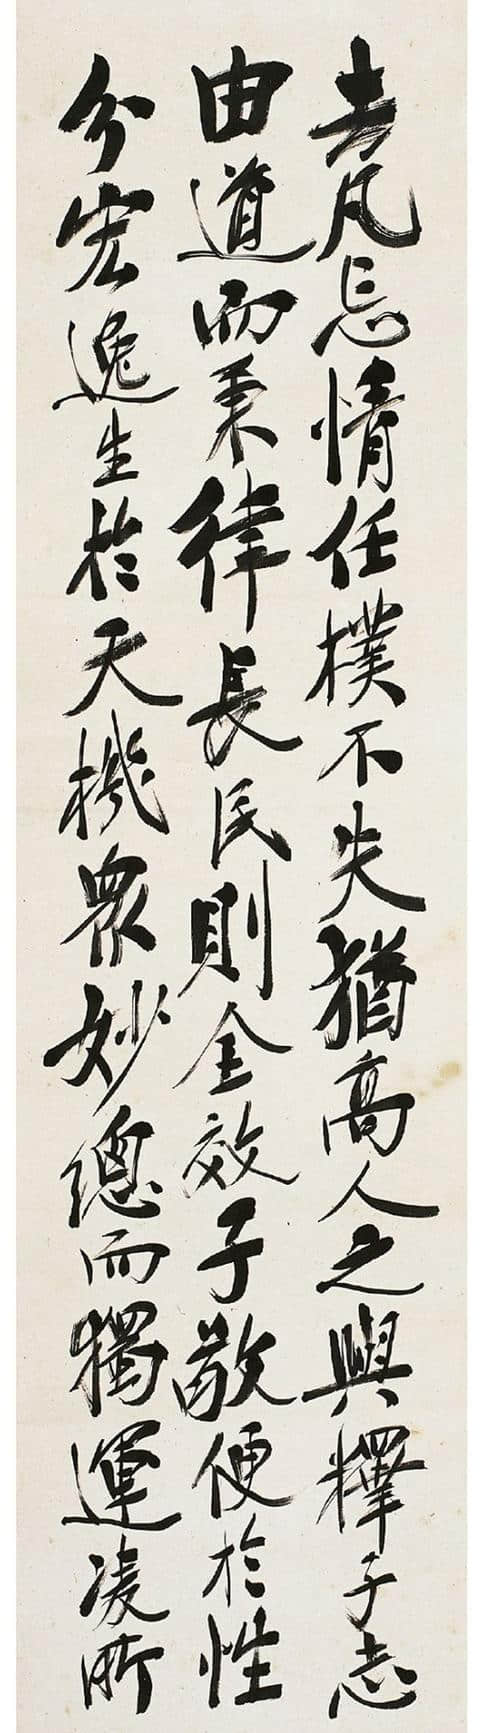 去凡忘情任樸不失猶高人之與釋子志
由道而秉律長民則全效子敬便於性
分宏逸生於天機眾妙總而獨運凌所